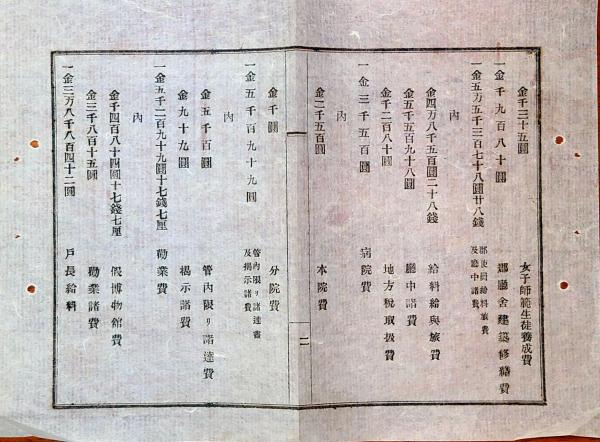 金千三十五圓 女子師範生徒養成費
一金千九百八十圓 郡廳舍建築修繕費
一金五万五千三百七十八圓廿八錢 郡吏員給料旅費
及廳中諸費
內
金四万八千五百圓二十八錢 給料給與旅費
金五千五百九十八圓 廳中諸費
金千二百八十圓 地方稅取扱費
一金三千五百圓 病院費
內
金二千五百圓 本院費
二
金千圓 分院費
一金五千百九十九圓 管內限リ諸達書
及揭示諸費
內
金五千百圓 管內限リ諸達費
金九十九圓 揭示諸費
一金五千二百九十九圓十七錢七厘 勸業費
內
金千四百八十四圓十七錢七厘 假博物館費
金三千八百十五圓 勸業諸費
一金三万八千八百四十二圓 戶長給料